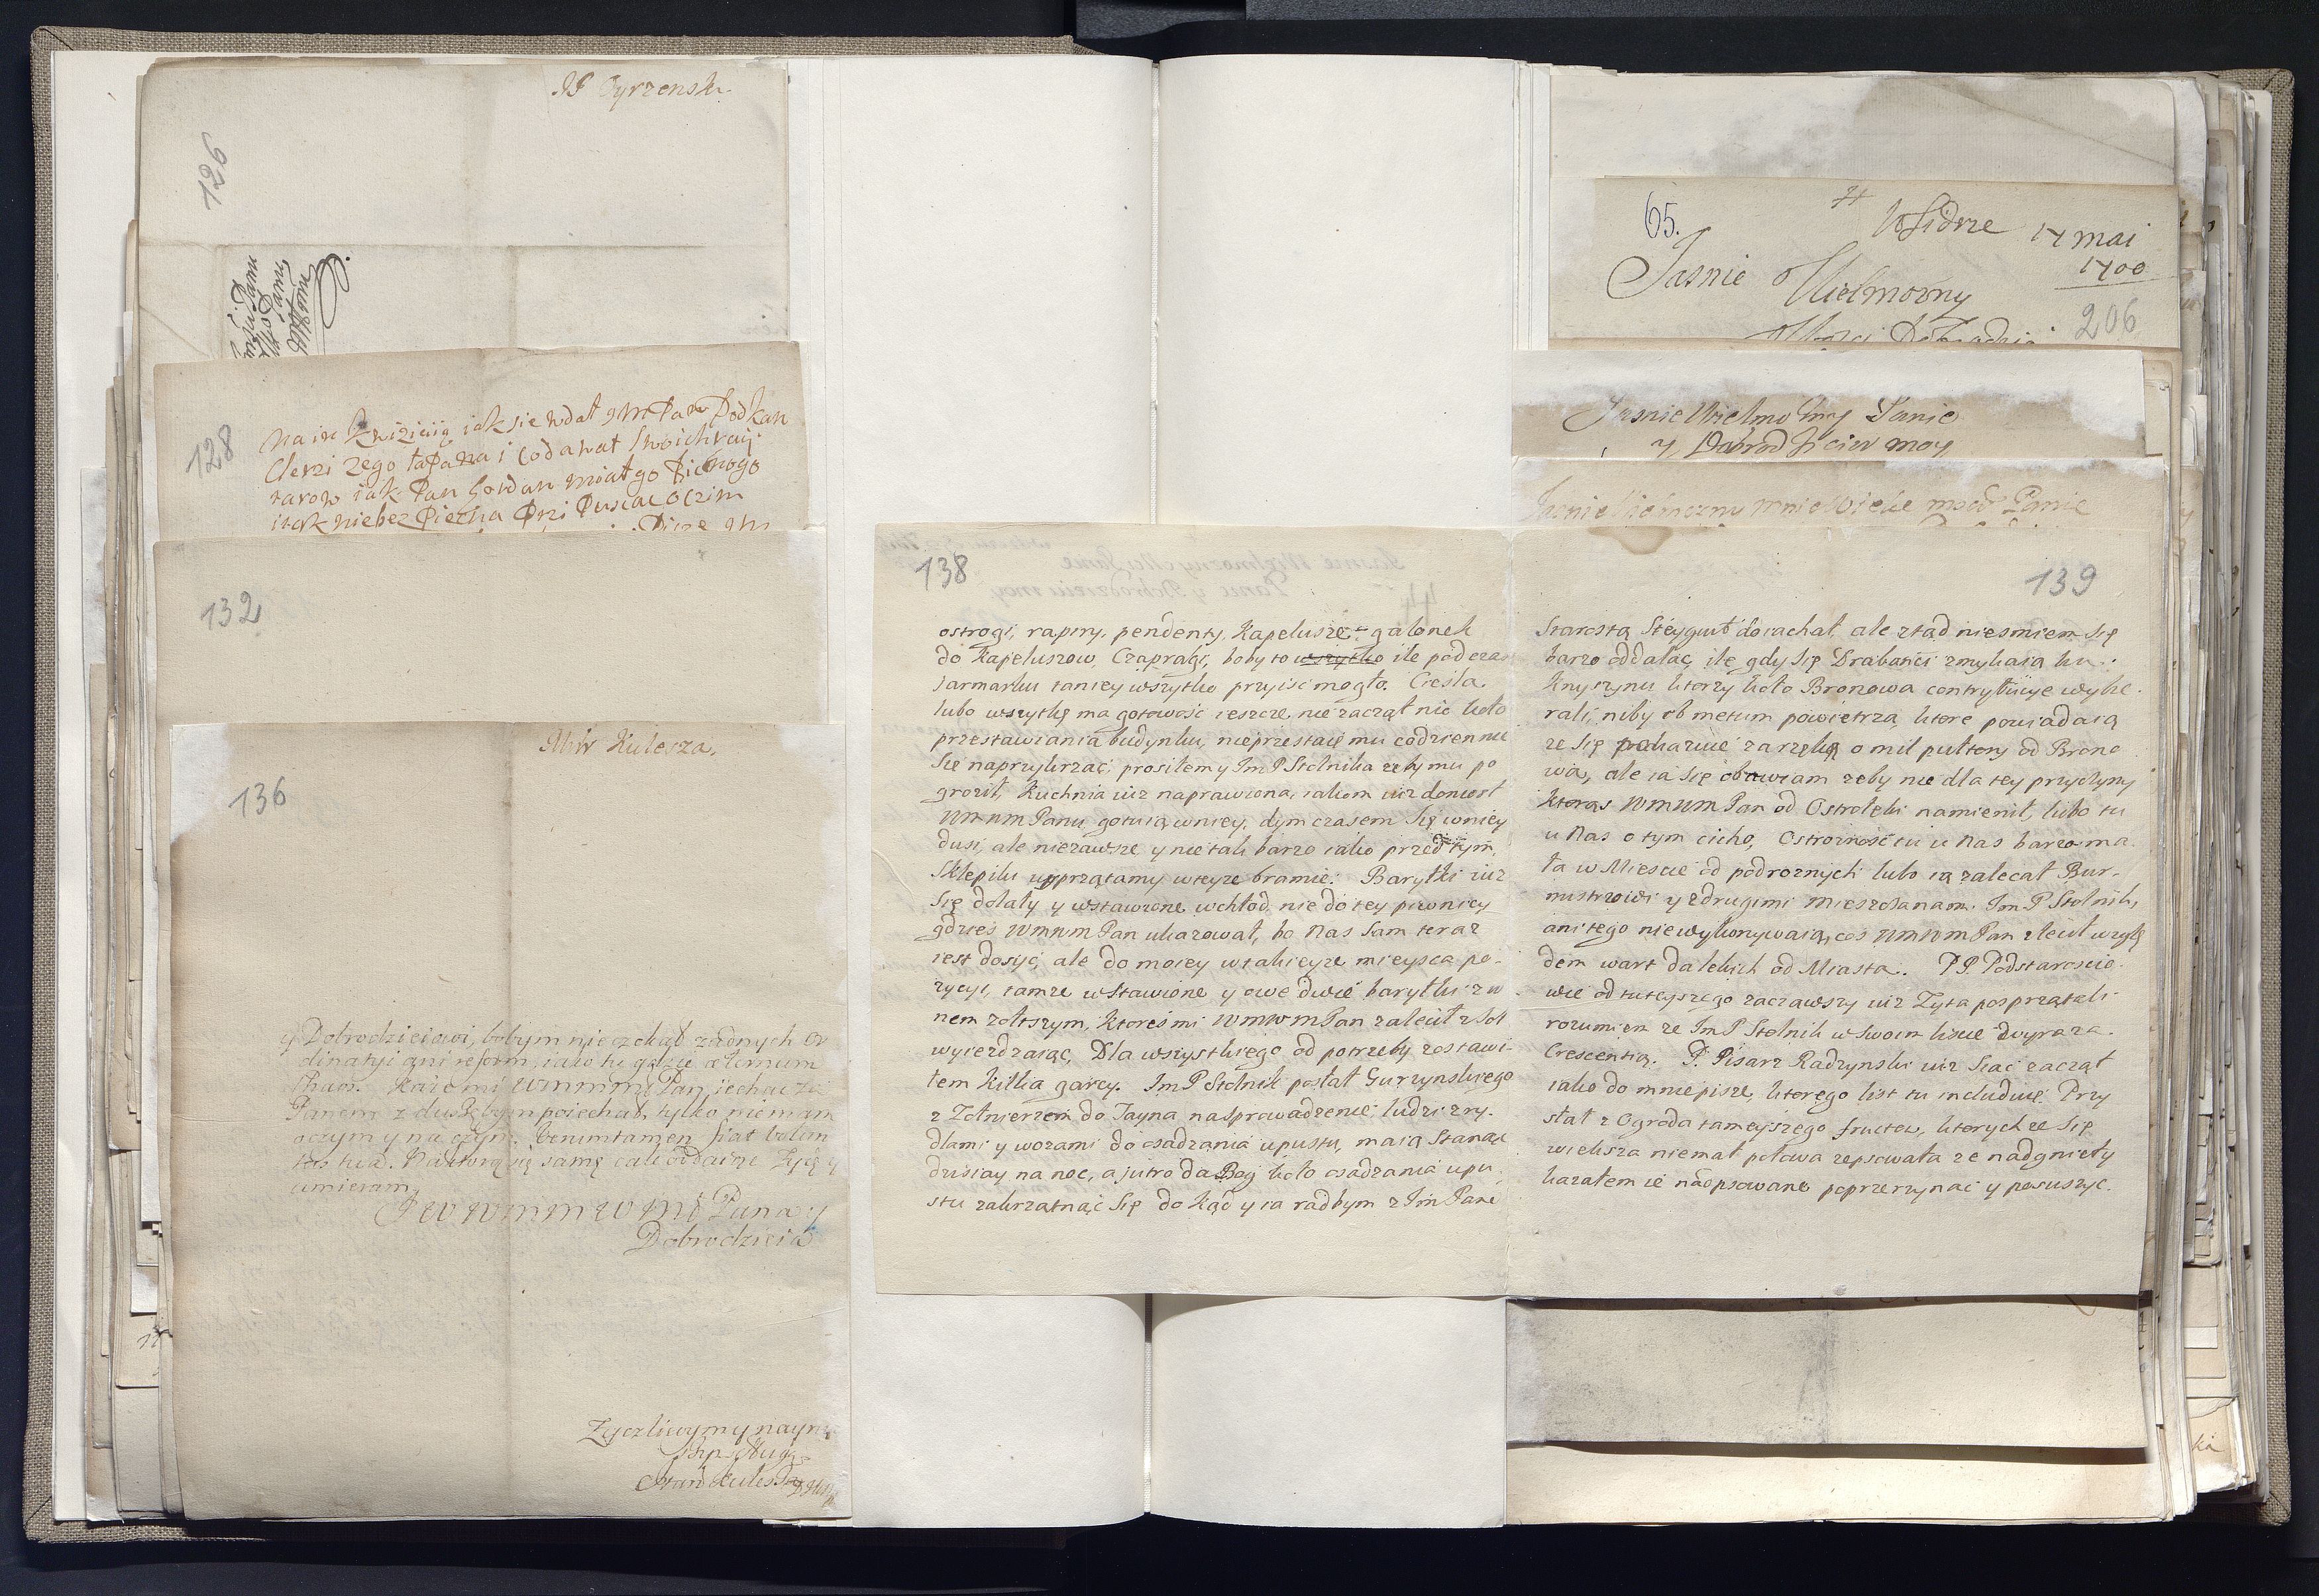 126
128
na in
Clerzi zego
rarow iak Pan
iak niebezPieczna Przi
132
Mśćw Kulesza.
136
y Dobrodzieiowi, bobym nie czekał żadnych or
dinatyi ani reform, iako tu gdzie æternum
chaos. Każe mi WMMM Pan iechać za
Panem z duszą bym poiechał, tylko nie mam
oczym y na czym. Verumtamen fiat volun
tas tua. Na ktorą się samę cale oddaię żyię y
umieram
Pana y
Dobrodzieia
Zyczliwym y nayni
sługą
Kulesza
138
ostrogi, rapiry, pendenty, Kapelusze galonek
do Kapeluszow, Czapragi, boby to wszytko ile podczas
iarmarku taniey wszytko przyisc mogło. Ciesla
lubo wszytkę ma gotowość ieszcze nie zaczął nic koło
przestawiania budynku, nieprzestaię mu codziennie
się naprzykrzac, prosiłem y Im P Stolnika żeby mu po
groził, Kuchnia iuz naprawiona, iakom iuz doniosł
WMWM Panu, gotuią wniey, dym czasem się wniey
dusi, ale niezawsze y nie tak barzo iako przed tym,
Sklepiku uprzątamy wteyze bramie. Baryłki iuz
się dolały y wstawione wchłod, nie do tey piwnicy
gdzies WMWM Pan ukazował, bo nas sam teraz
iest dosyc, ale do moiey wtakieyze mieysca po-
zycyi, tamze wstawione y owe dwie baryłki z wi
nem zołtszym, ktores mi WMWM Pan zalecił z Sol
wyiezdzaiąc, Dla wszystkiego od potrzeby zostawi-
łem kilka garcy. Im P Stolnik posłał Gurzynskiego
z Zołnierzem do Tayna nasprowadzenie ludzi z ry-
dlami y wozami do osadzania upustu, maią stanąc
dzisiay na noc, a jutro da Bog koło osadzania upu
stu zakrzątnąc się do kąd y ia radbym z Im Pane
139
Starostą Steygwił doiachał, ale ztąd niesmiem się
barzo oddalac, ile gdy się Drabanci zmykaią ku
Knyszynu ktorzy koło Bronowa contrybucye wybie
rali, niby ob metum powietrza, ktore powiadaią
ze się pokazuie za rzeką o mil pułtory od Brono
wa, ale ia się obawiam zeby nie dla tey przyczyny
ktorąs WMWM Pan od Ostrołęki namienił, lubo tu
u Nas o tym cicho, Ostroznosc tu u Nas barzo ma
ła w Miescie od podroznych lubo ią zalecał Bur-
mistrzowi y zdrugimi Mieszczanami Im P Stolnik,
ani tego niewykonywaią, cos WMWM Pan zlecił wzglę
dem wart dalekich od Miasta. PP. Podstaroscio
wie od tuteyszego zaczawszy iuz Zyta posprzątali
rozumiem ze Im P Stolnik w Swoim liscie wyraza
Crescentią. P. Pisarz Radzynski iuz siac zaczął
iako do mnie pisze, ktorego list tu includuię. Przy
słał z Ogroda tameyszego fructow, ktorych ze się
wieksza niemal połowa zepsowała ze nadgnieły
kazałem ie nadpsowane poprzerzynac y posuszyc.
65.
WSidrze 17 mai
1700
Jasnie Wielmozny
206
Jasnie Wielmożny Panie
y Dobrodzieiu moy
Jasnie Wielmozny mnie Wielce mości Panie